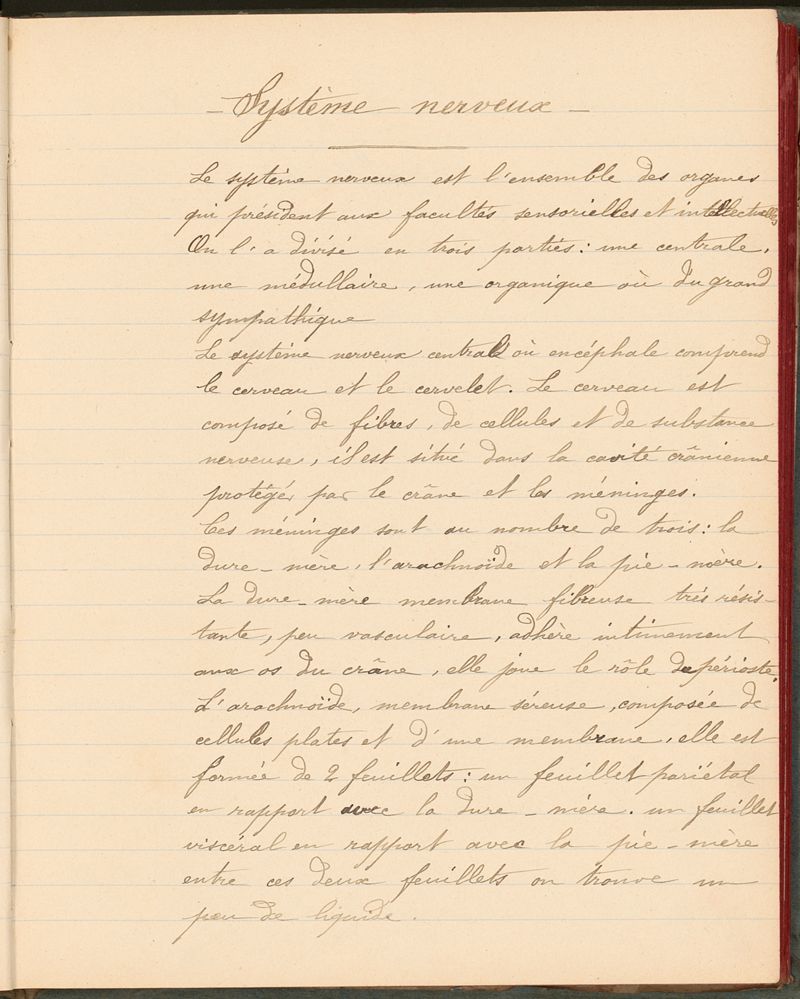 - Système nerveux -
Le système nerveux est l'ensemble des organes
qui président aux facultés sensorielles et intellectuelles
On l'a divisé en trois parties : une centrale,
une médullaire, une organique où du grand
sympathique
Le système nerveux central où encéphale comprend
le cerveau et le cervelet. Le cerveau est
composé de fibres, de cellules et de substance
nerveuse, il est situé dans la cavité crânienne
protégé, par le crâne et les méninges.
Ces méninges sont au nombre de trois : la
dure-mère, l'arachnoïde et la pie-mère.
La dure-mère membrane fibreuse très résis-
tante, peu vasculaire, adhère intimement
aux os du crâne, elle joue le rôle de périoste.
L'arachnoïde, membrane séreuse, composée de
cellules plates et d'une membrane, elle est
formée de 2 feuillets : un feuillet pariétal
en rapport avec la dure-mère. un feuillet
viscéral en rapport avec la pie-mère
entre ces deux feuillets on trouve un
peu de liquide.